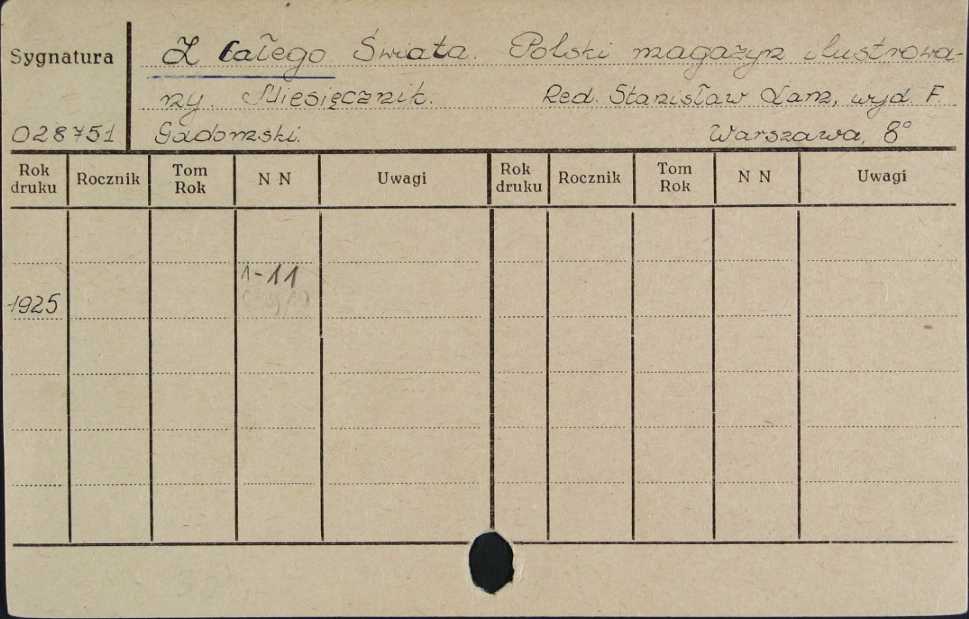 Sygnatura
Z całego Świata. Polski magazyn ilustrowa-
ny. Miesięcznik. Red. Stanisław Lam, wyd. F.
028751 Gadomski. Warszawa, 8°
Rok druku Rocznik Tom Rok N N Uwagi Rok druku Rocznik Tom Rok N N Uwagi
1-11
1925